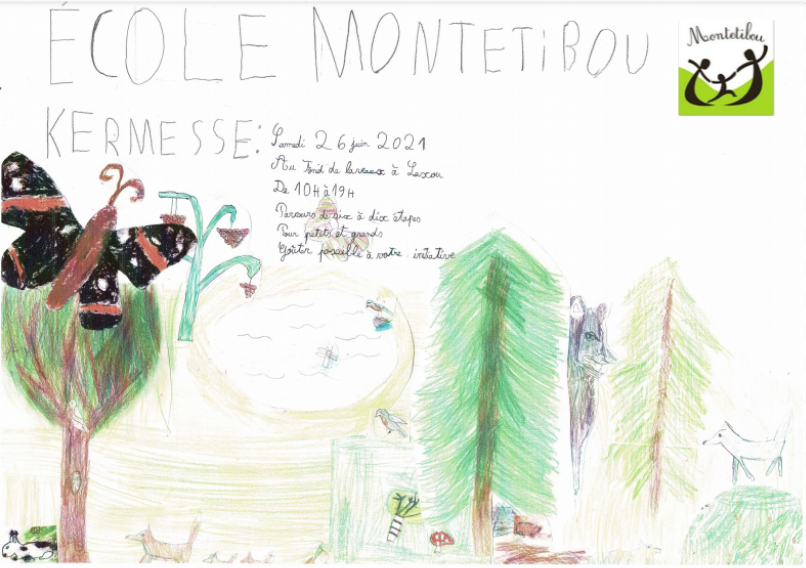 ÉCOLE MONTETIBOU
Montetibou
KERMESSE:
Samedi 26 juin 2021
Au fond de à Lescou
De 10H à 19H
Parcours de six à dix étapes
Pour petits et grands
Goûter possible à votre initative